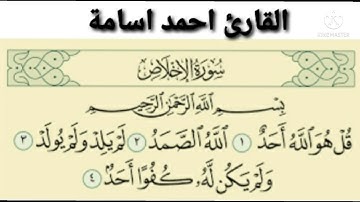 القارئ احمد اسامة
سُورَةُ الإِخْلَاصِ
بِسْمِ اللَّهِ الرَّحْمَٰنِ الرَّحِيمِ
قُلْ هُوَ اللَّهُ أَحَدٌ ١ اللَّهُ الصَّمَدُ ٢ لَمْ يَلِدْ وَلَمْ يُولَدْ ٣
وَلَمْ يَكُن لَّهُ كُفُوًا أَحَدٌ ٤